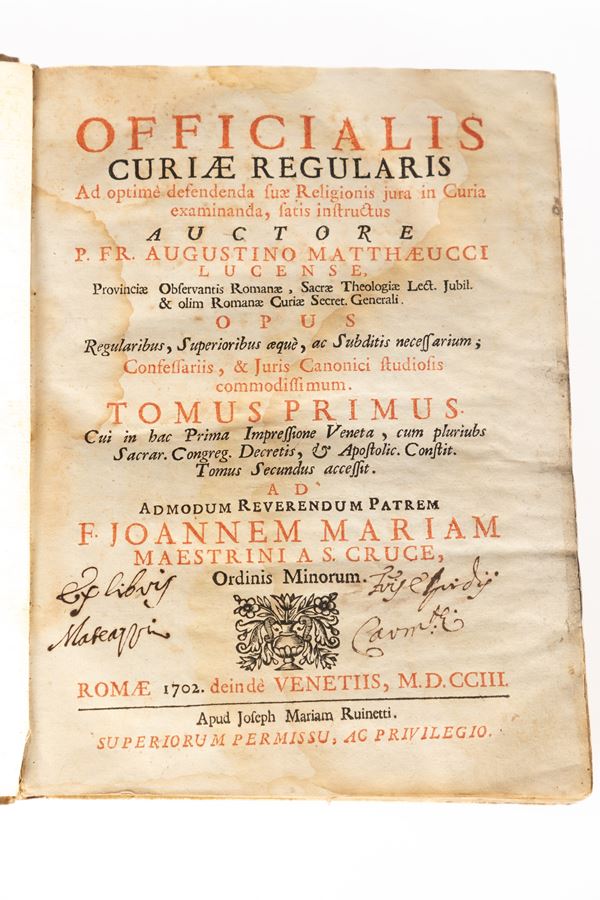 OFFICIALIS
CURIÆ REGULARIS
Ad optimè defendenda ſuæ Religionis jura in Curia
examinanda, ſatis inſtructus
AUCTORE
P. FR. AUGUSTINO MATTHÆUCCI
LUCENSE,
Provinciæ Obſervantis Romanæ, Sacræ Theologiæ Lect. Jubil.
& olim Romanæ Curiæ Secret. Generali.
OPUS
Regularibus, Superioribus æquè, ac Subditis neceſſarium;
Confeſſariis, & Juris Canonici ſtudioſis
commodiſſimum.
TOMUS PRIMUS.
Cui in hac Prima Impreſſione Veneta, cum pluriubs
Sacrar. Congreg. Decretis, & Apoſtolic. Conſtit.
Tomus Secundus acceſſit.
AD
ADMODUM REVERENDUM PATREM
F. JOANNEM MARIAM
MAESTRINI A S. CRUCE,
Ordinis Minorum.
Ex libris
ROMÆ 1702. deindè VENETIIS, M.D.CCIII.
Apud Joſeph Mariam Ruinetti.
SUPERIORUM PERMISSU, AC PRIVILEGIO.